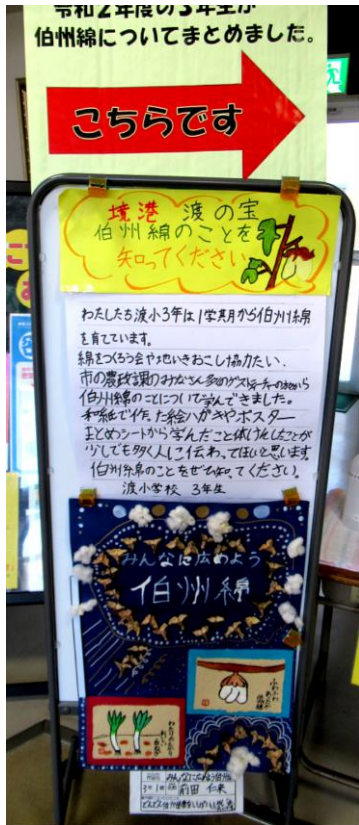 令和2年度の3年生が
伯州綿についてまとめました。
こちらです
境港 渡の宝
伯州綿のことを
知ってください
わたしたち渡小3年は1学期から伯州綿
を育てています。
綿をつくろう会や地いきおこし協力たい、
市の農政課のみなさん
伯州綿のことについて学んできました。
和紙で作った絵ハガキやポスター
まとめシートから学んだこと体けんしたことが
少しでも多く人に伝わってほしいと思います。
伯州綿のことをぜひ知ってください。
渡小学校 3年生
みんなに広めよう
伯州綿
ふわふわ
みんなに広めよう伯州綿
3年1組
前田